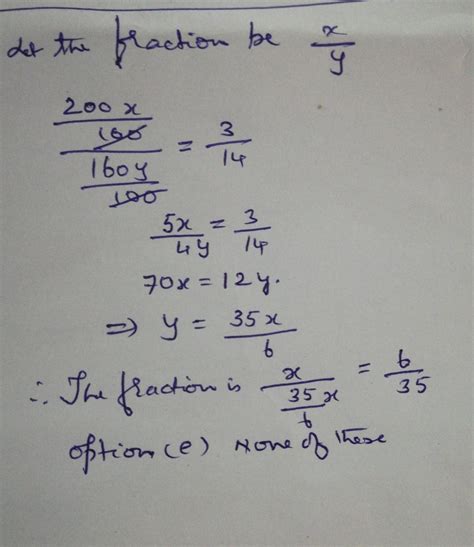 Let the fraction be x/y
(200x/100)/(160y/100) = 3/14
5x/4y = 3/14
70x = 12y.
⇒ y = 35x/6
∴ The fraction is x/(35x/6) = 6/35
option (e) None of these